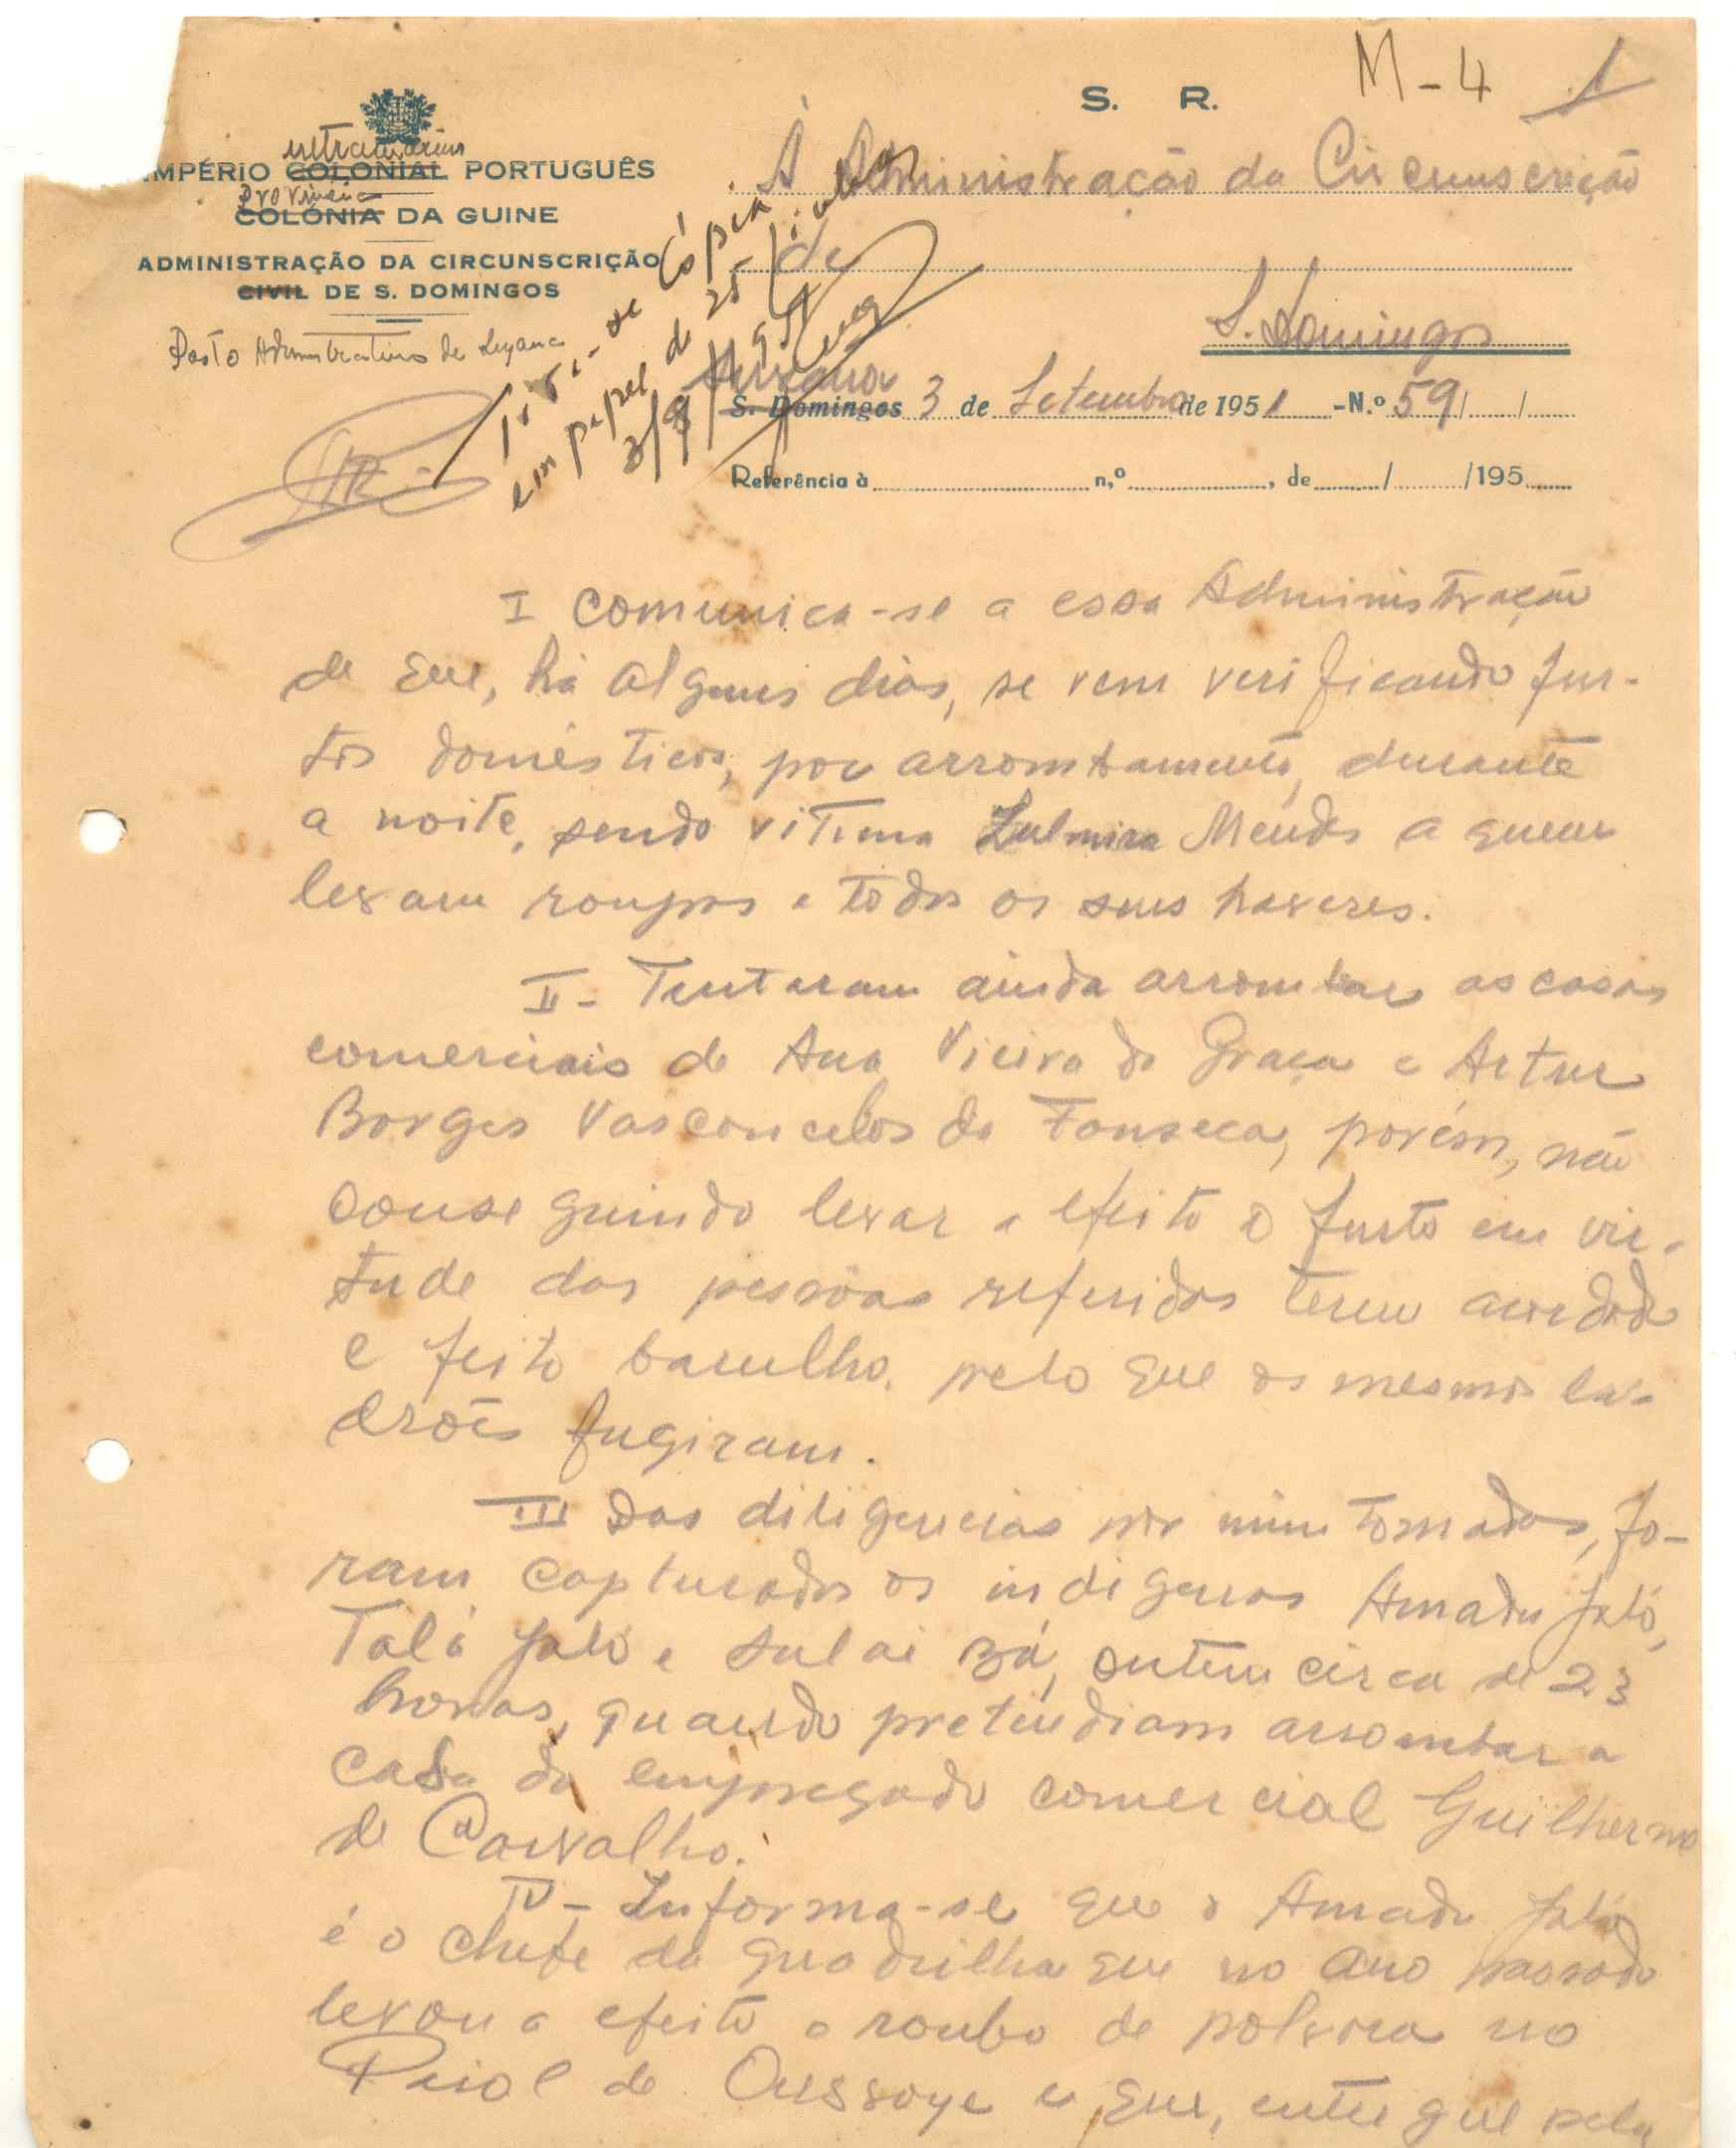 S. R.
M-4 1
ultramarino
IMPÉRIO COLONIAL PORTUGUÊS
Provincia
COLÓNIA DA GUINE
ADMINISTRAÇÃO DA CIRCUNSCRIÇÃO
CIVIL DE S. DOMINGOS
Posto Administrativo de Suzana
À Administração da Circunscrição
de
S. Domingos
cópia
em papel de 25 linhas
3/9/951
Suzana
S. Domingos 3 de Setembro de 1951 -N.º 59/ /
Referência à n,º , de / /195
I Comunica-se a essa Administração
de que, há alguns dias, se vem verificando fur-
tos domésticos, por arrombamento, durante
a noite, sendo vitima Zulmira Mendes a quem
levam roupas e todos os seus haveres.
II - Tentaram ainda arrombar as casas
comerciais de Ana Vieira da Graça e Artur
Borges Vasconcelos da Fonseca, porém, não
conseguindo levar a efeito o furto em vir-
tude das pessôas referidas terem acordado
e feito barulho, pelo que os mesmos la-
drões fugiram.
III Das diligencias por mim tomadas, fo-
ram capturados os indigenas Amadu Jaló,
Talá Jaló e Sulai Bá, ontem cerca de 23
horas, quando pretendiam arrombar a
casa do empregado comercial Guilherme
de Carvalho.
IV - Informa-se que o Amadu Jaló
é o chefe da quadrilha que no ano passado
levou a efeito o roubo de polvora no
Paiol de Oussoye e que, entregue pela